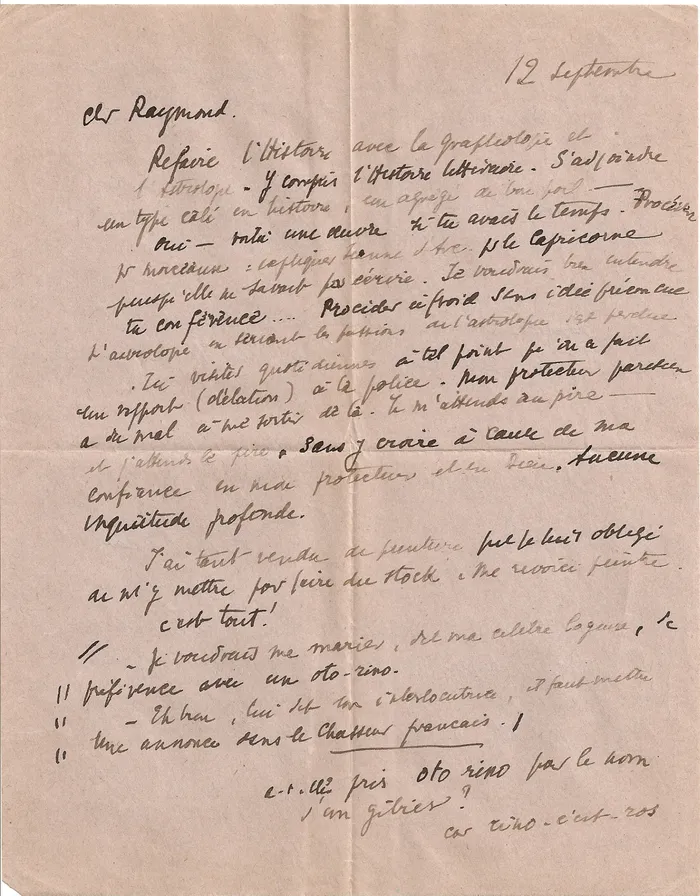 12 septembre
Cher Raymond.
Refaire l'Histoire avec la graphologie et
l'astrologie - Y compris l'Histoire littéraire. S'adjoindre
un type calé en histoire, un agrégé de bon poil —
oui — voilà une œuvre si tu avais le temps. Procéder
pr morceaux : expliquer Jeanne d'Arc pr le Capricorne
puisqu'elle ne savait pas écrire. Je voudrais bien entendre
ta conférence.... Procéder à froid sans idée préconçue
L'astrologie en servant les passions de l'astrologue est perdue
. Ici visites quotidiennes à tel point qu'on a fait
un rapport (délation) à la police. Mon protecteur parisien
a du mal à me sortir de là. Je m'attends au pire —
et j'attends le pire, sans y croire à cause de ma
confiance en mon protecteur et en Dieu. Aucune
inquiétude profonde.
J'ai tant vendu de peinture que je suis obligé
de m'y mettre pour faire du stock. Me revoici peintre.
c'est tout!
// - Je voudrais me marier, dit ma célèbre , de
// préférence avec un oto-rino.
// - Eh bien, lui dit son interlocutrice, il faut mettre
// une annonce dans le Chasseur français.
a-t-elle pris oto rino pour le nom
d'un gibier?
car rino-c'est-ros